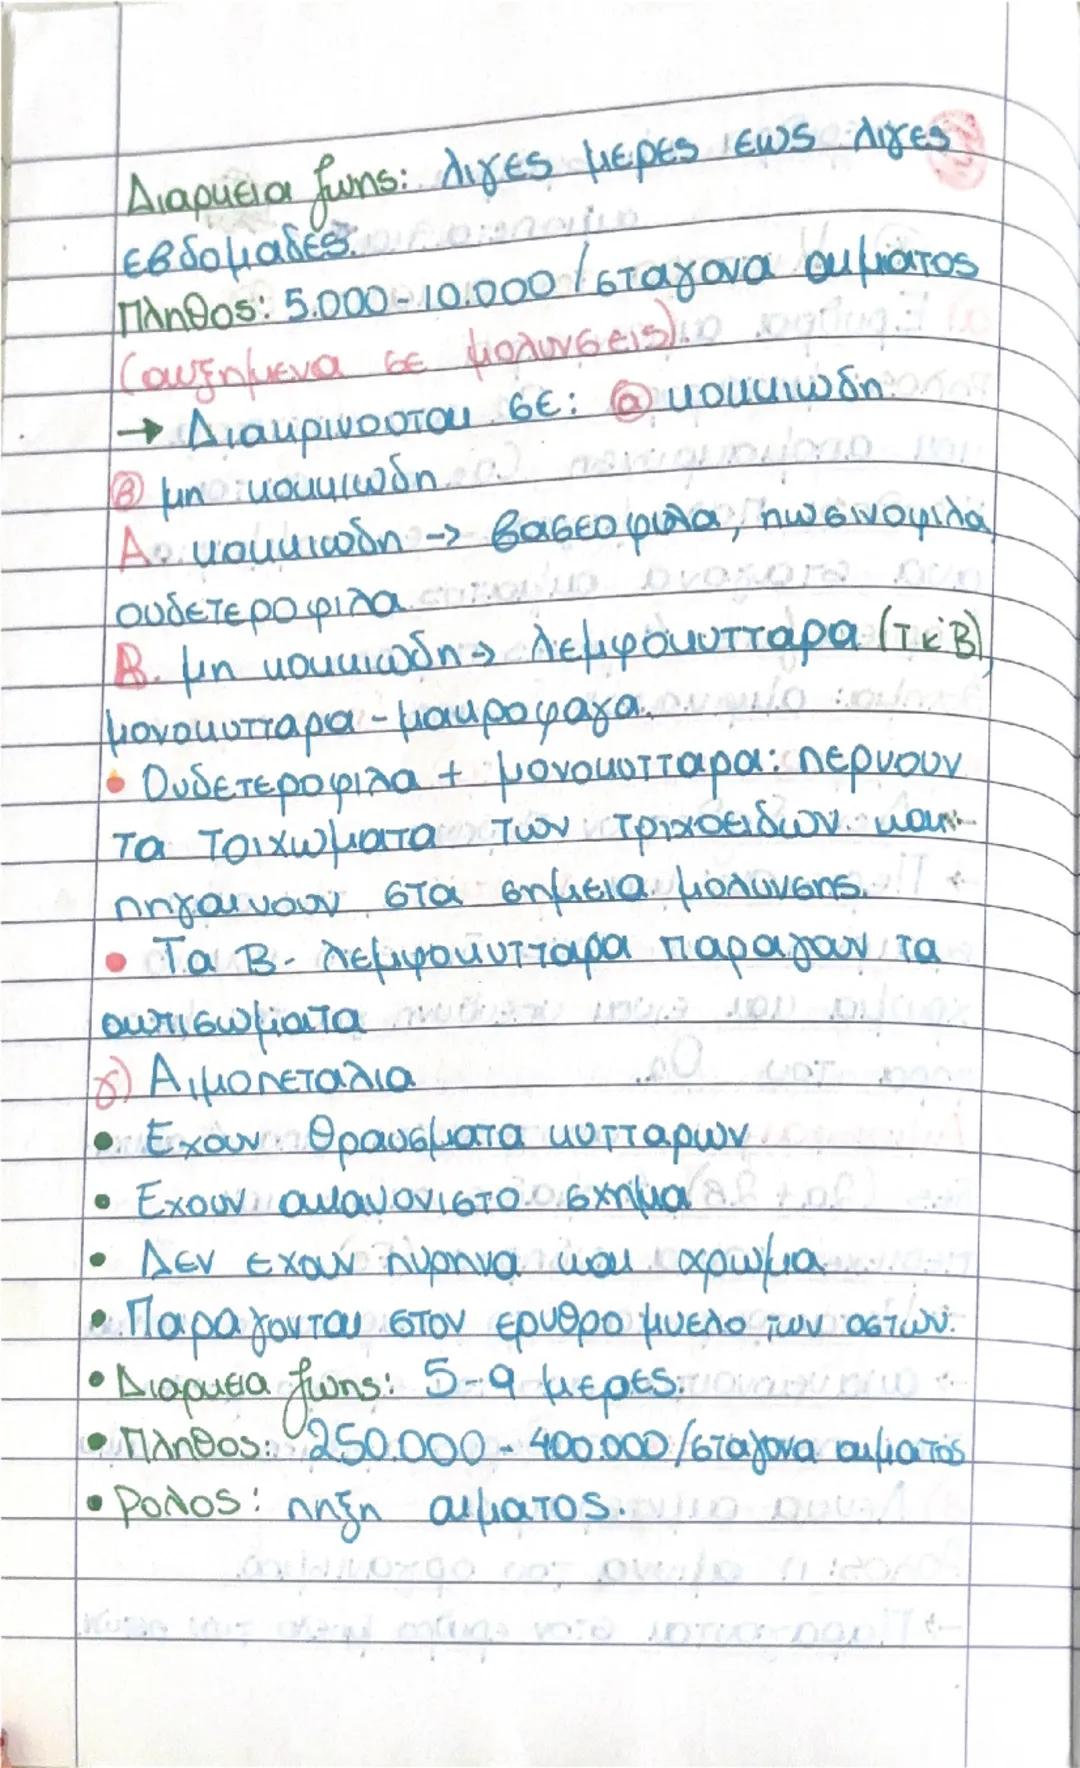 Διαρκεια ζωης: λιγες μερες εως λιγες
εβδομαδες.
Πληθος: 5.000-10.000/σταγονα αιματος
(αυξημενα σε μολυνσεις).
→ Διακρινοσται σε: ⓐ κοκκιωδη
ⓑ μη κοκκιωδη
Α. κοκκιωδη -> βασεοφιλα, ηωσινοφιλα
ουδετεροφιλα
Β. μη κοκκιωδη-> λεμφοκυτταρα (Τ κ' Β)
μονοκυτταρα - μακροφαγα.
• Ουδετεροφιλα + μονοκυτταρα: περνουν
τα τοιχωματα των τριχοειδων και
πηγαινουν στα σημεια μολυνσης.
• Τα Β- λεμφοκυτταρα παραγουν τα
αντισωματα
γ) Αιμοπεταλια
• Εχουν θραυσματα κυτταρων
• Εχουν ακανονιστο σχημα
• Δεν εχουν πυρηνα και χρωμα
• Παραγονται στον ερυθρο μυελο των οστων.
• Διαρκεια ζωης: 5-9 μερες.
• Πληθος: 250.000 - 400.000/σταγονα αιματος
• Ρολος: πηξη αιματος.